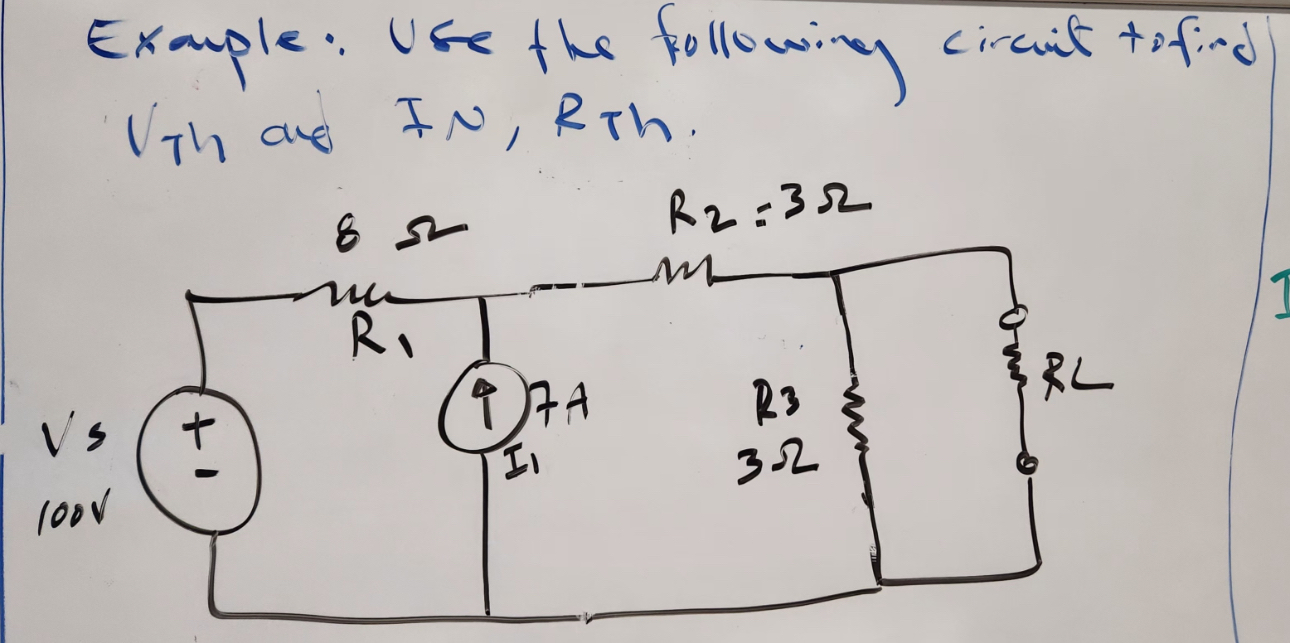 Example: Use the following circuit to find
VTh and IN, RTh.
8 Ω
R2 = 3Ω
R1
Vs
100V
+
-
7A
I1
R3
3Ω
RL
I